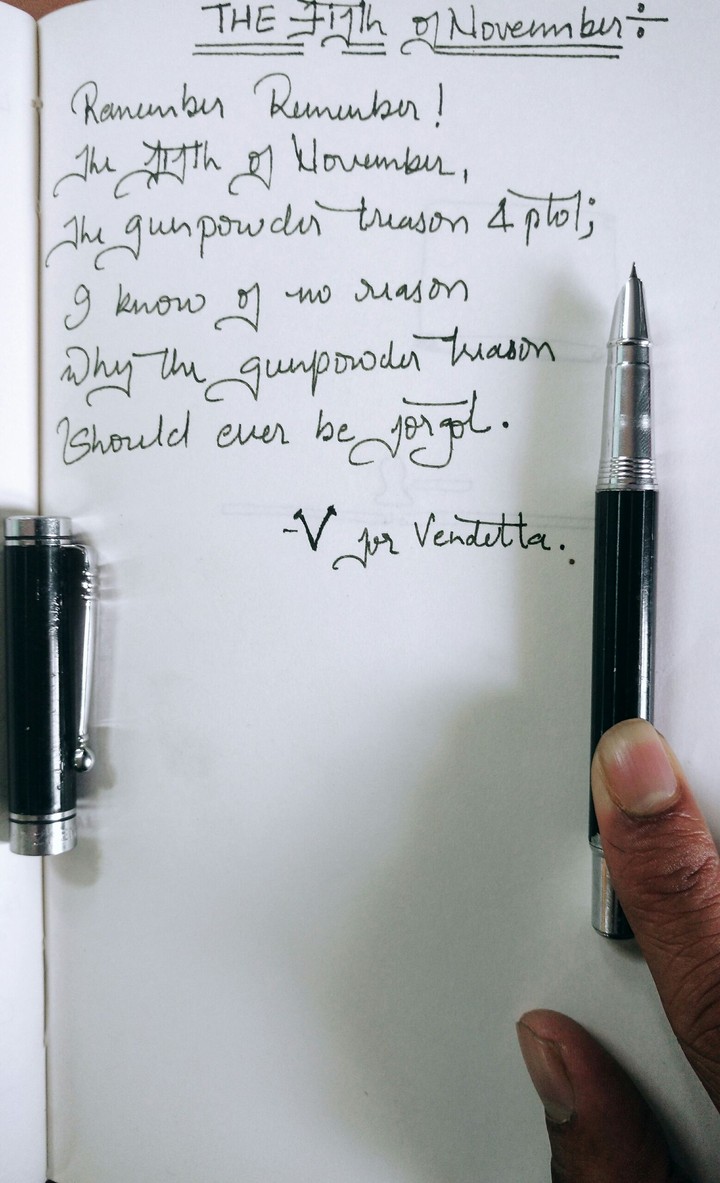 THE Fifth of November ÷
Remember Remember!
The fifth of November,
The gunpowder treason & ptol;
I know of no reason
Why the gunpowder treason
Should ever be forgot.
-V for Vendetta.